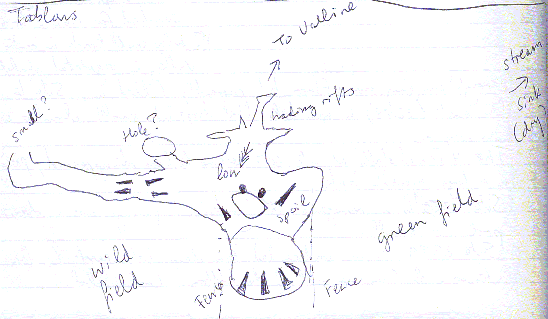 Tablars
To Valline
stream
sink
(dry)
small?
Hole?
hading rifts
low
spoil
green field
wild
field
Fence
Fence